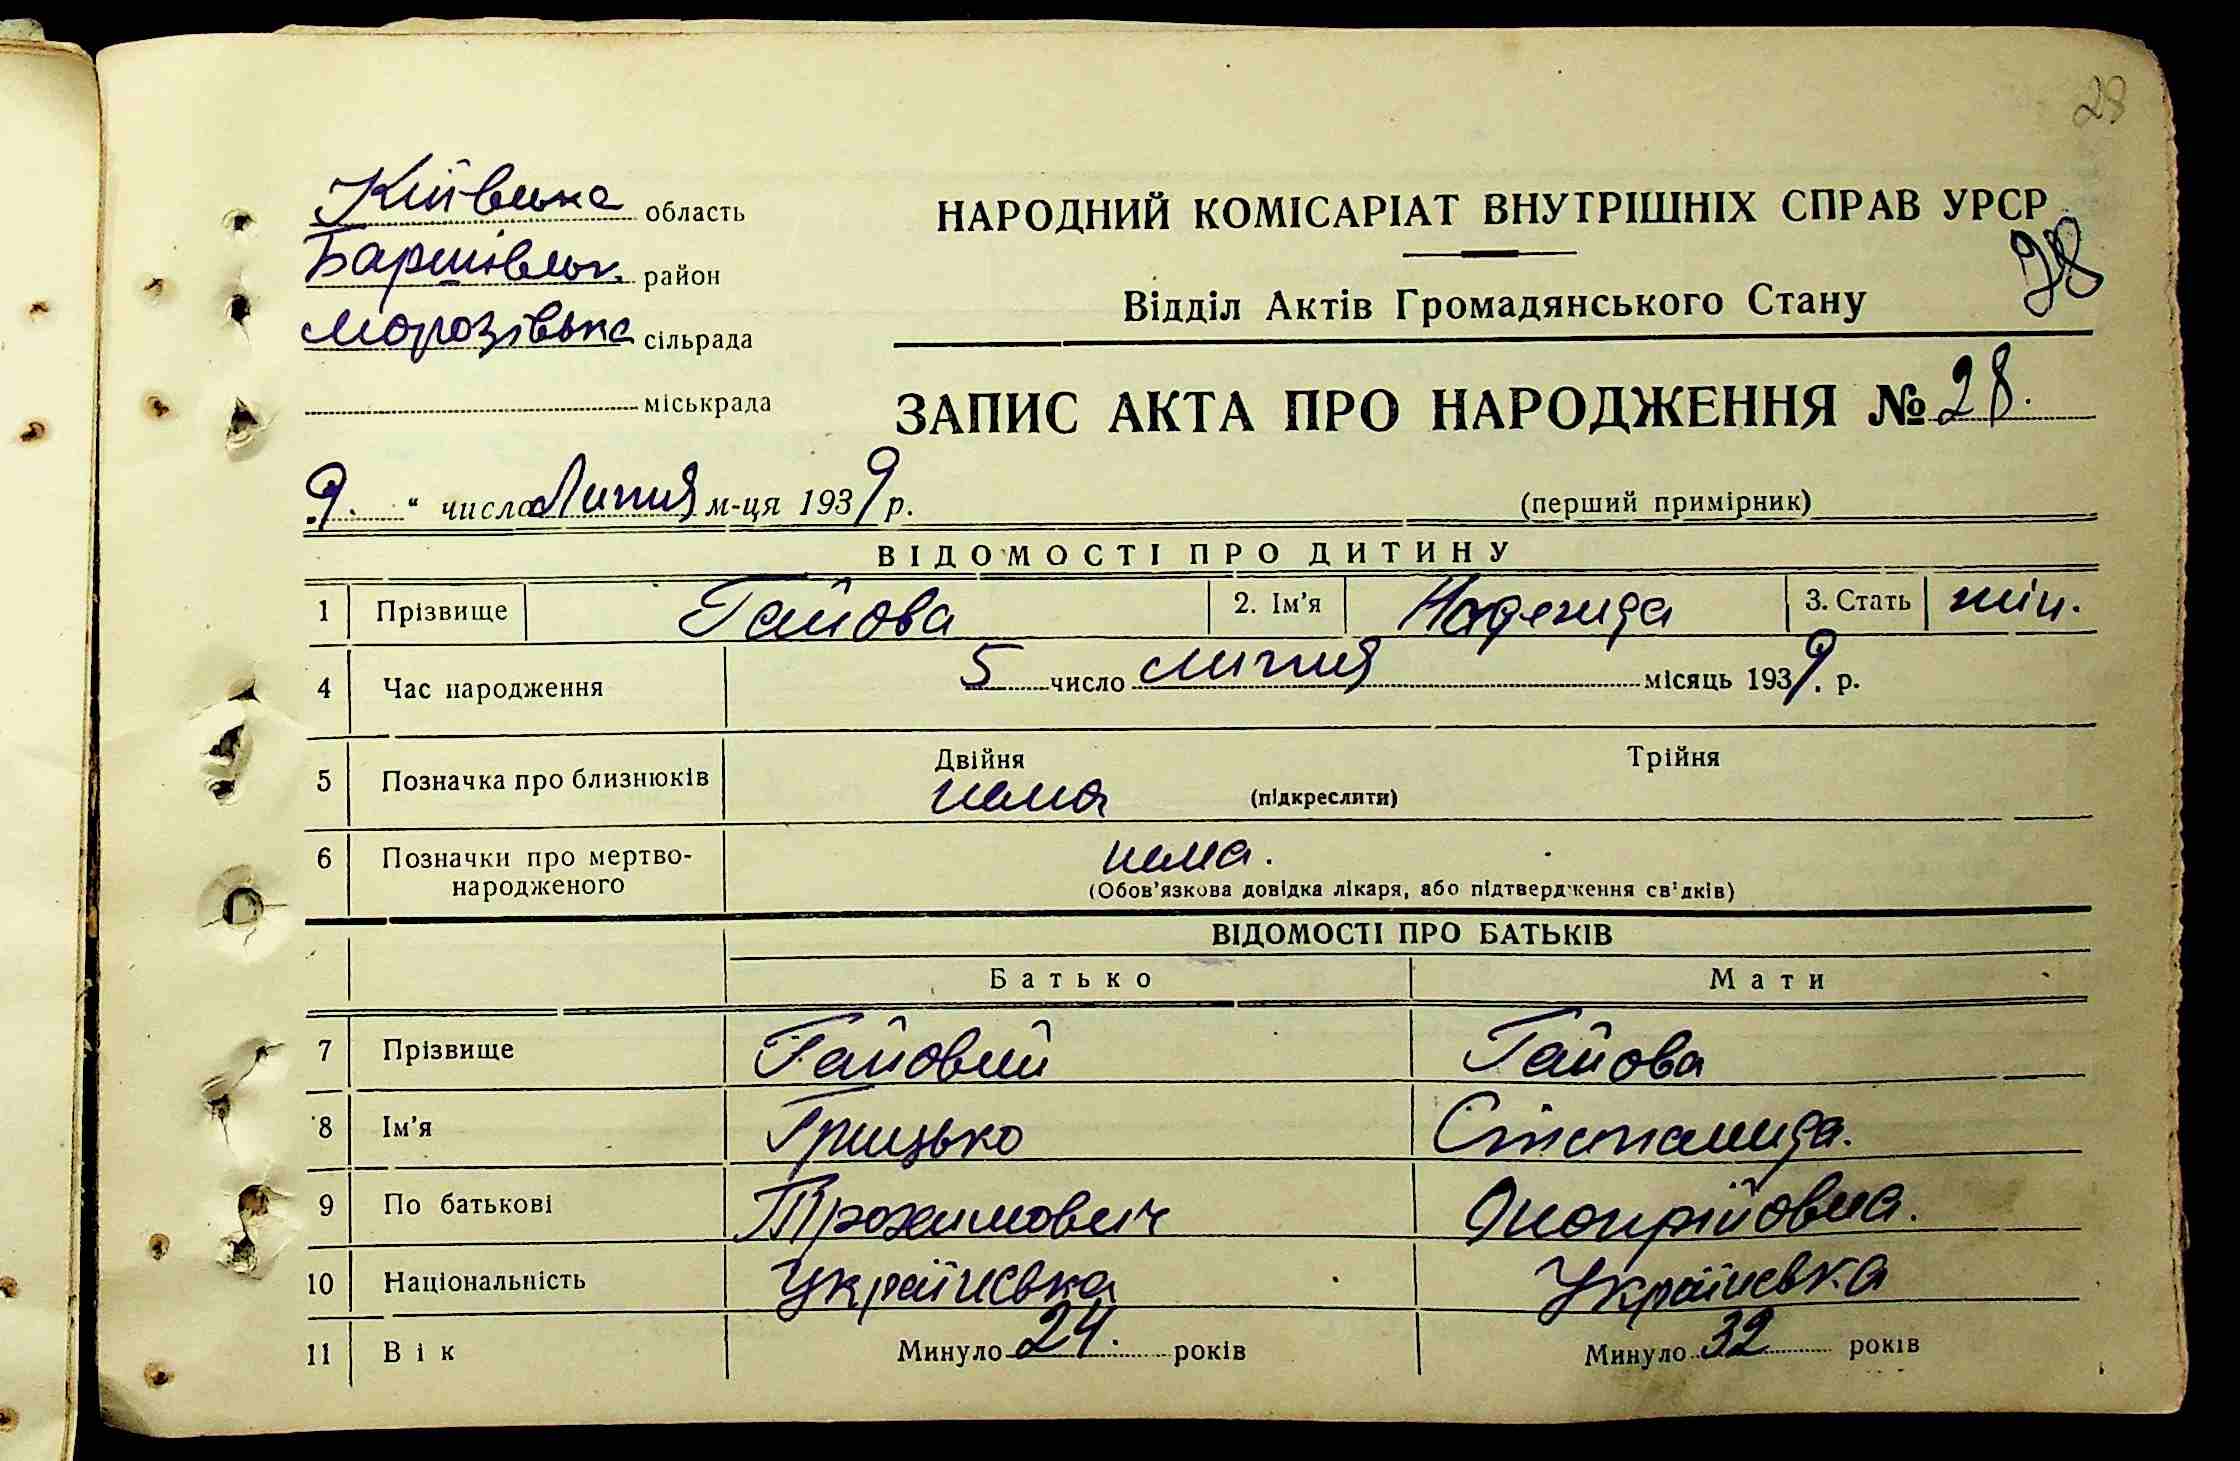 28
Київська область
НАРОДНИЙ КОМІСАРІАТ ВНУТРІШНІХ СПРАВ УРСР
Баришівськ. район
28
Відділ Актів Громадянського Стану
Морозівська сільрада
міськрада
ЗАПИС АКТА ПРО НАРОДЖЕННЯ № 28.
9. “ число Липня м-ця 1939 р.
(перший примірник)
ВІДОМОСТІ ПРО ДИТИНУ
1 Прізвище Гайова 2. Ім’я Надежида 3. Стать жін.
4 Час народження 5 число липня місяць 1939. р.
5 Позначка про близнюків Двійня Трійня
нема (підкреслити)
6 Позначки про мертво-
народженого
нема.
(Обов’язкова довідка лікаря, або підтвердження свідків)
ВІДОМОСТІ ПРО БАТЬКІВ
Батько Мати
7 Прізвище Гайовий Гайова
8 Ім’я Грицько Степанида.
9 По батькові Трохимович Онопрійовна.
10 Національність Українська Українська
11 Вік Минуло 24. років Минуло 32 років